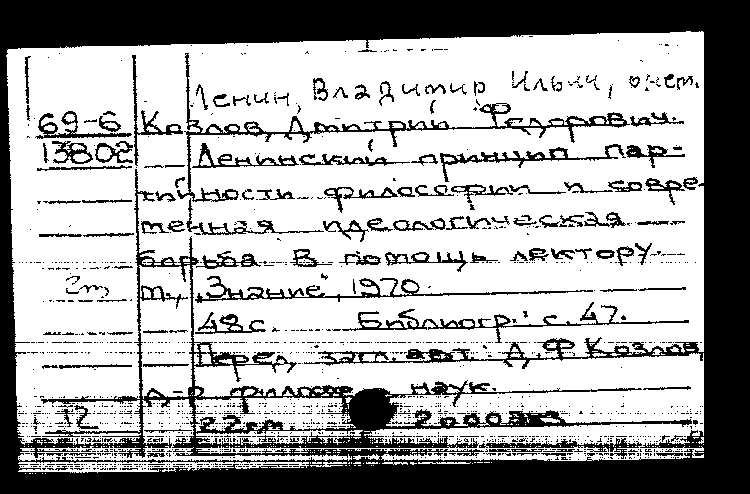 Ленин, Владимир Ильич, о нем.
69-6 Козлов, Дмитрий Федорович.
13802 Ленинский принцип пар-
тийности философии и совре-
менная идеологическая
борьба. В помощь лектору.
2т М., "Знание", 1970.
48 с. Библиогр.: с. 47.
Перед загл. авт.: Д. Ф. Козлов,
д-р философ наук.
12 22 см. 2000 экз